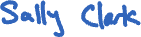 Sally Clark